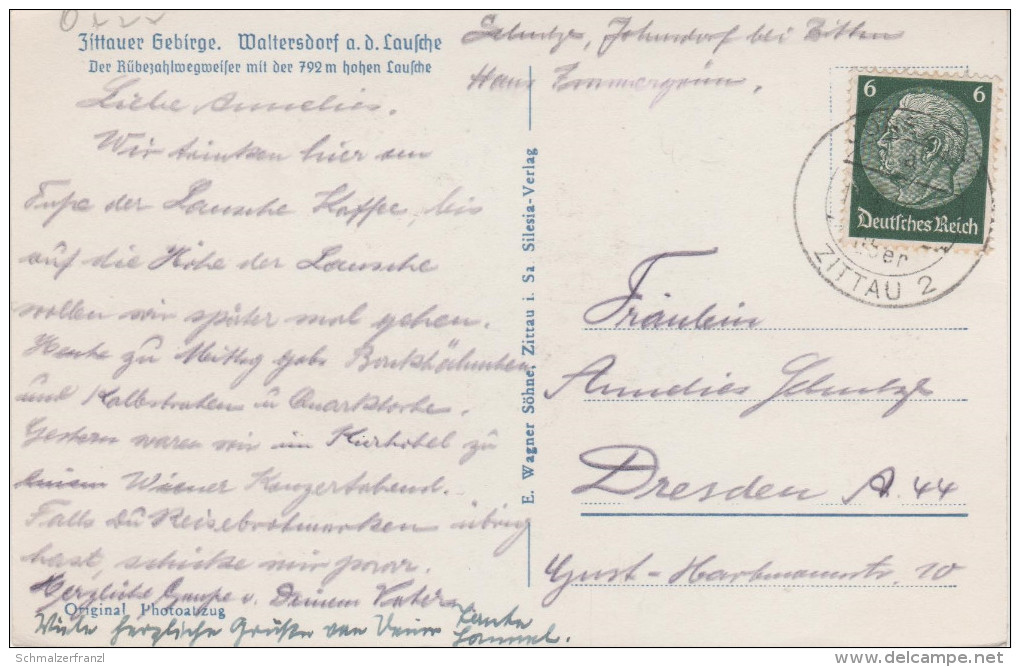 Zittauer Gebirge. Waltersdorf a. d. Lausche
Der Rübezahlwegweiser mit der 792 m hohen Lausche
Schutze, Johnsdorf bei Zittau
Haus Immergrün.
Liebe Annelies.
Wir trinken hier am
Fuße der Lausche Kaffee, bis
auf die Höhe der Lausche
wollen wir später mal gehen.
Heute zu Mittag gabs
und Kalbsbraten u Quarktorte.
Gestern waren wir im zu
einem Wiener Konzertabend.
Falls Du Reisebrotmarken übrig
hast, schicke mir paar.
Herzliche Grüße v. Deinem Vater
Original Photoabzug
Viele herzliche Grüße von Deiner Tante
E. Wagner Söhne, Zittau i. Sa. Silesia-Verlag
6 6
Deutsches Reich
ZITTAU 2
Fräulein
Annelies Schutze
Dresden A. 44
Gust-Hartmannstr. 10
Schmalzerfranzl
delcampe.net